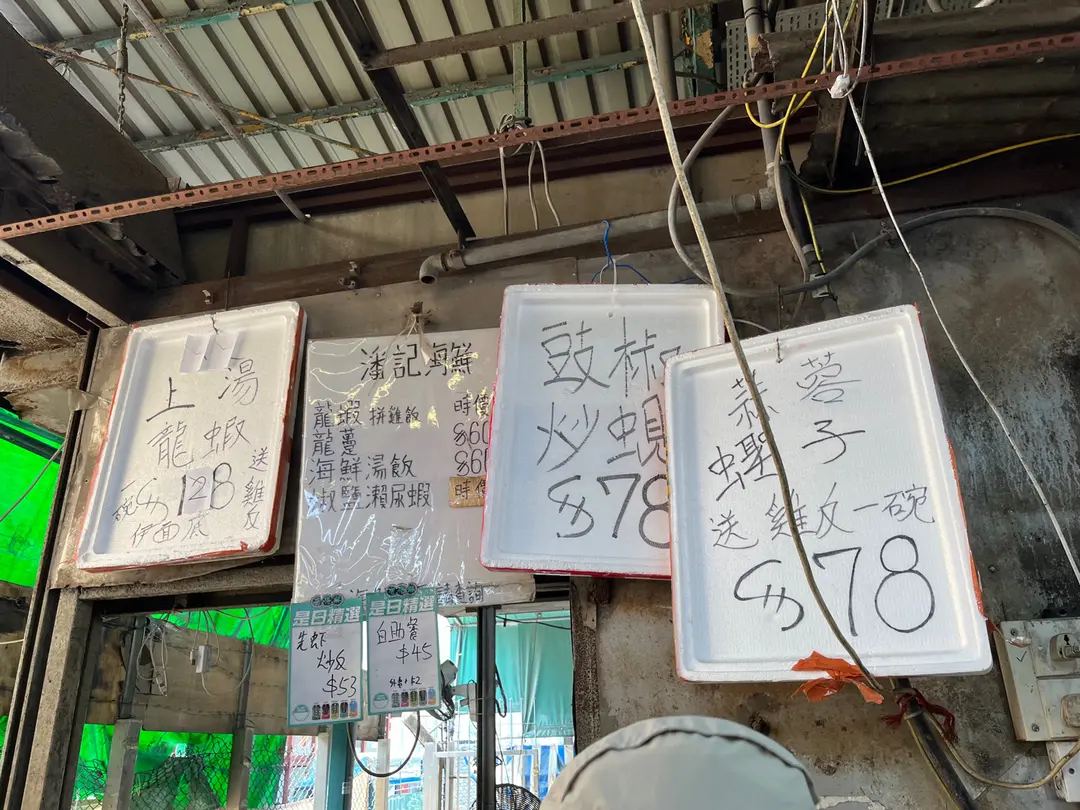 上湯
龍蝦
送雞反
碗 $128
伊面底
潘記海鮮
龍蝦拼雞飯 時價
龍躉 $60
海鮮湯飯 $60
椒鹽瀨尿蝦 時價
查詢
豉椒
炒蜆
$78
蒜蓉
蟶子
送雞反一碗
$78
是日精選
炒饭
$53
是日精選
$45